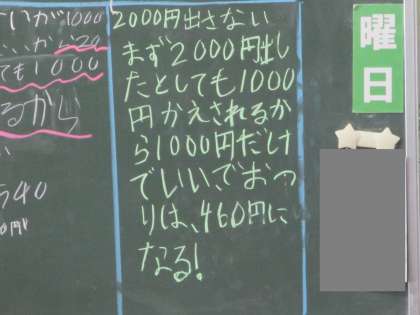 いが1000
20
ても1000
るから
540
2000円出さない
まず2000円出し
たとしても1000
円かえされるか
ら1000円だけ
でいい、でおつ
りは、460円に
なる!
曜
日